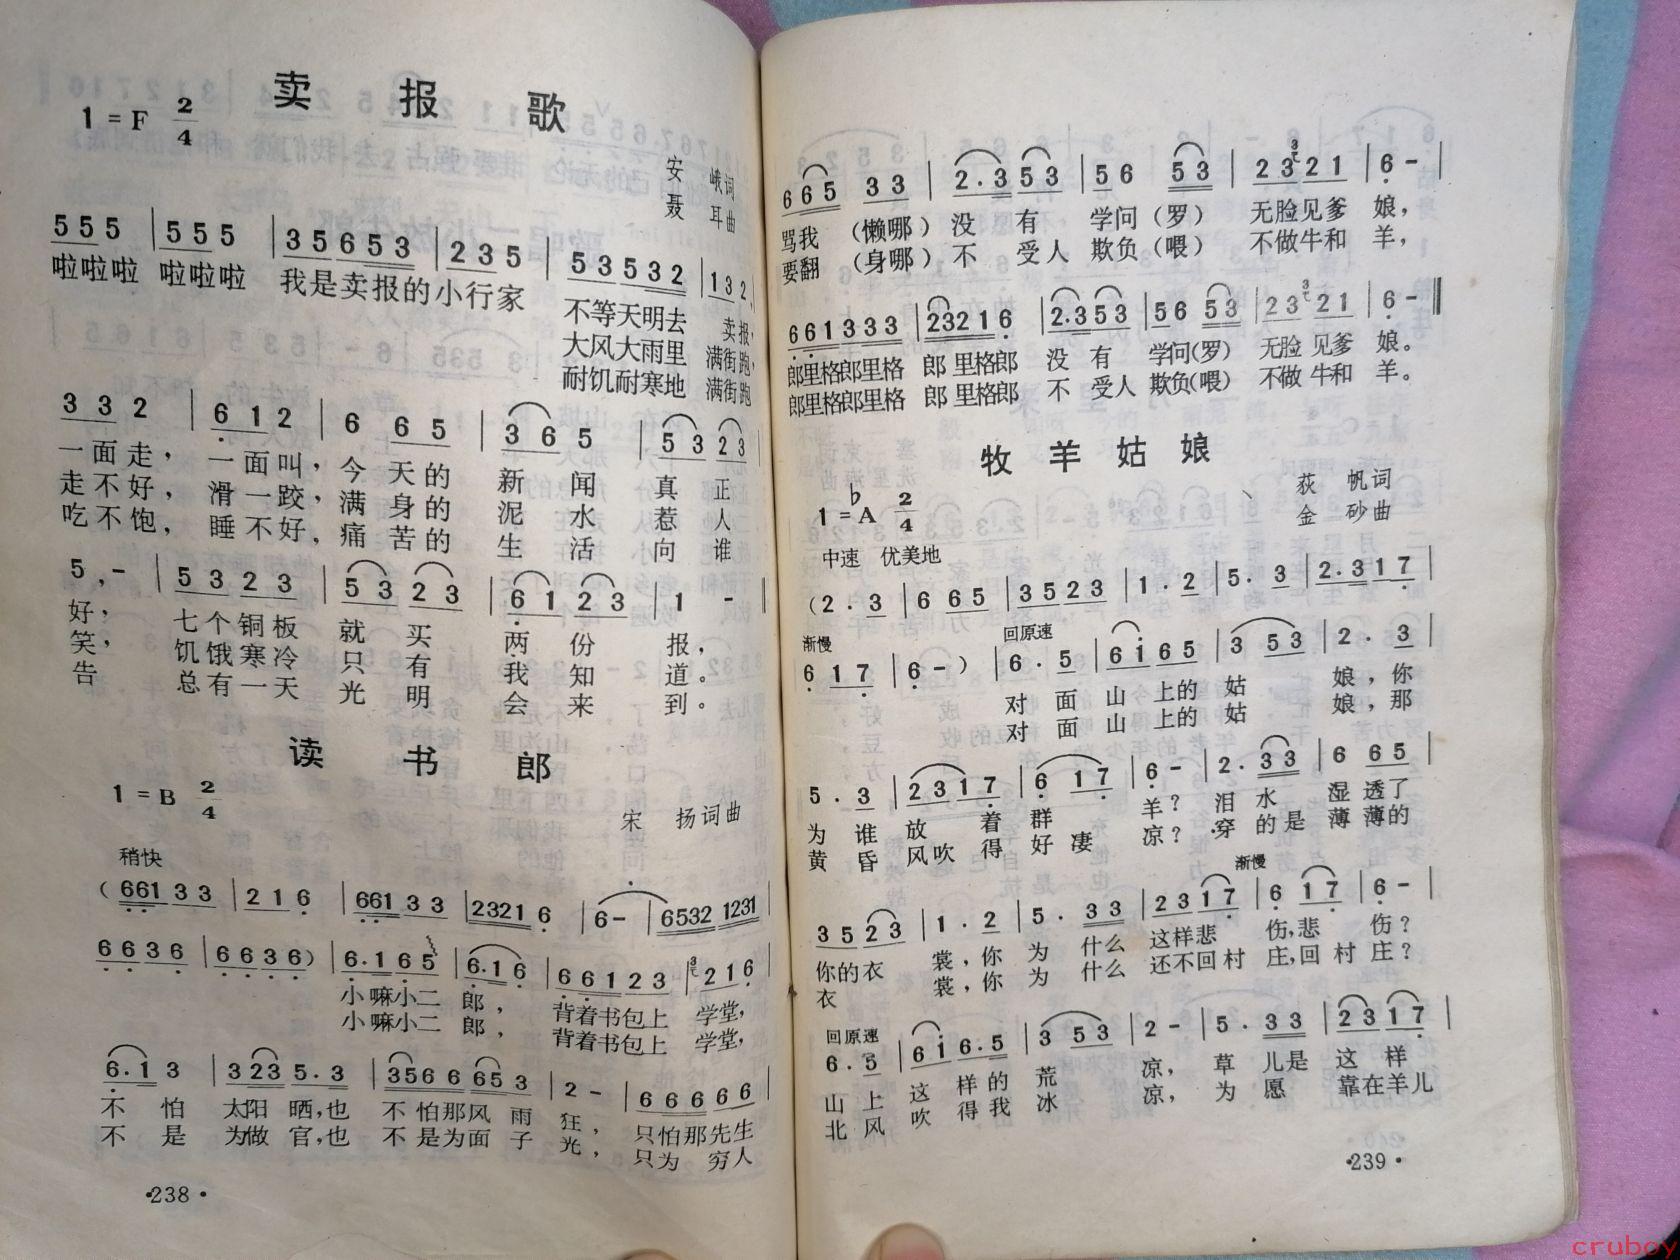 卖 报 歌
1=F 2/4
安 峨词
聂 耳曲
555 | 555 | 35653 | 235 | 53532 | 132,
啦啦啦 啦啦啦 我是卖报的小行家 不等天明去 卖报,
大风大雨里 满街跑,
耐饥耐寒地 满街跑
3 3 2 | 6 1 2 | 6 65 | 36 5 | 53 23 |
一面走, 一面叫, 今天的 新闻 真正
走不好, 滑一跤, 满身的 泥水 惹人
吃不饱, 睡不好, 痛苦的 生活 向谁
5, - | 53 23 | 53 23 | 61 23 | 1 - ‖
好, 七个铜板 就买 两份 报,
笑, 饥饿寒冷 只有 我知 道。
告 总有一天 光明 会来 到。
读 书 郎
1=B 2/4
宋 扬词曲
稍快
( 661 33 | 216 | 661 33 | 2321 6 | 6 - | 6532 1231 |
6636 | 6636 ) | 6·1 65 | 6·1 6 | 661 23 | 216 |
小嘛小二 郎, 背着书包上 学堂,
小嘛小二 郎, 背着书包上 学堂,
6·1 3 | 323 5·3 | 356 6 65 3 | 2 - | 66666 |
不怕 太阳晒,也 不怕那风雨 狂, 只怕那先生
不是 为做官,也 不是为面子 光, 只为 穷人
·238·
665 33 | 2·3 53 | 56 53 | 23 21 | 6 - |
骂我 (懒哪) 没有 学问(罗) 无脸见爹 娘,
要翻 (身哪) 不受人 欺负(喂) 不做牛和 羊,
661333 | 23216 | 2·353 | 56 53 | 23 21 | 6 - ‖
郎里格郎里格 郎里格郎 没有 学问(罗) 无脸见爹 娘。
郎里格郎里格 郎里格郎 不受人 欺负(喂) 不做牛和 羊。
牧 羊 姑 娘
1=♭A 2/4
荻 帆词
金 砂曲
中速 优美地
(2·3 | 6 65 | 3523 | 1·2 | 5·3 | 2·317 |
渐慢 回原速
6 17 | 6 - ) | 6·5 | 61 65 | 3 53 | 2·3 |
对面 山上的 姑 娘,你
对面 山上的 姑 娘,那
5·3 | 2317 | 6 17 | 6 - | 2·33 | 6 65 |
为谁 放着 群 羊? 泪水 湿透了
黄昏 风吹得 好凄 凉? 穿的是 薄薄的
渐慢
35 23 | 1·2 | 5·33 | 2317 | 6 17 | 6 - |
你的衣 裳,你 为什么 这样悲 伤,悲 伤?
衣 裳,你 为什么 还不回村 庄,回村 庄?
回原速
6·5 | 61 6·5 | 3 53 | 2 - | 5·33 | 2317 |
山上 这样的 荒 凉, 草儿是 这样
北风 吹得我 冰 凉, 为愿 靠在羊儿
·239·
cruboy